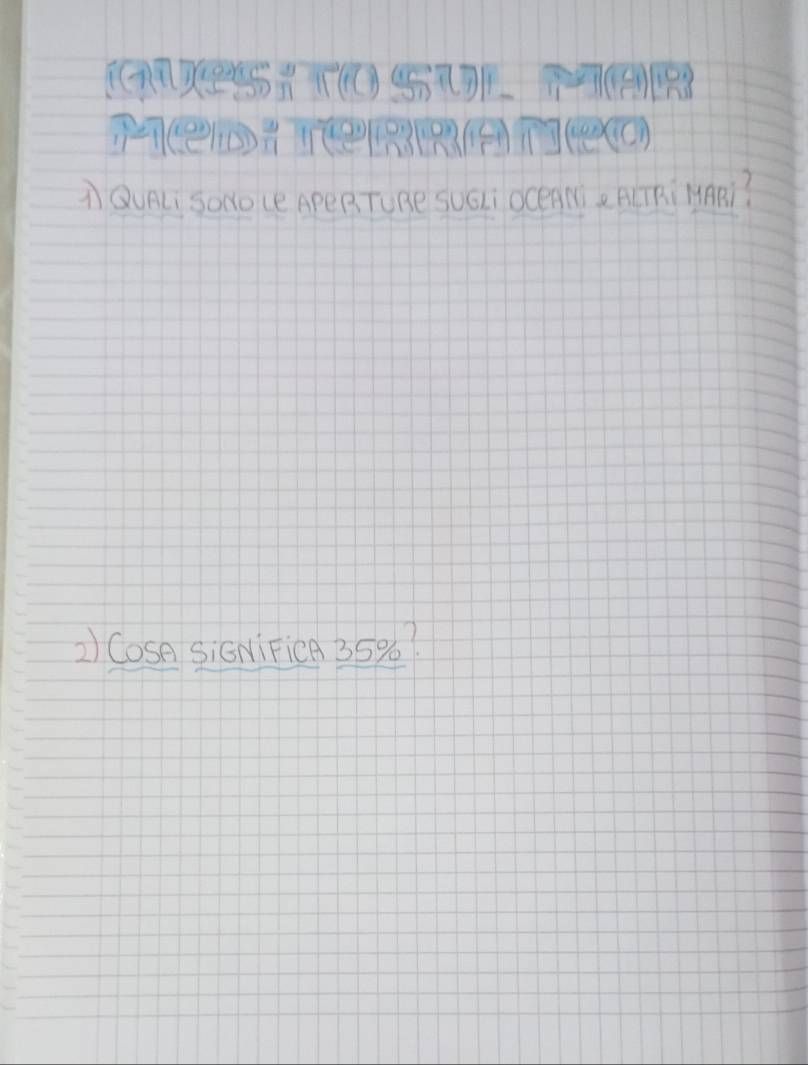 QUESiTO SUL MAR
MeDiTeRRANeO
1) QUALi SONO Le APeRTURe SUGLi OCeANi e ALTRi MARi?
2) COSA SiGNiFiCA 35%?